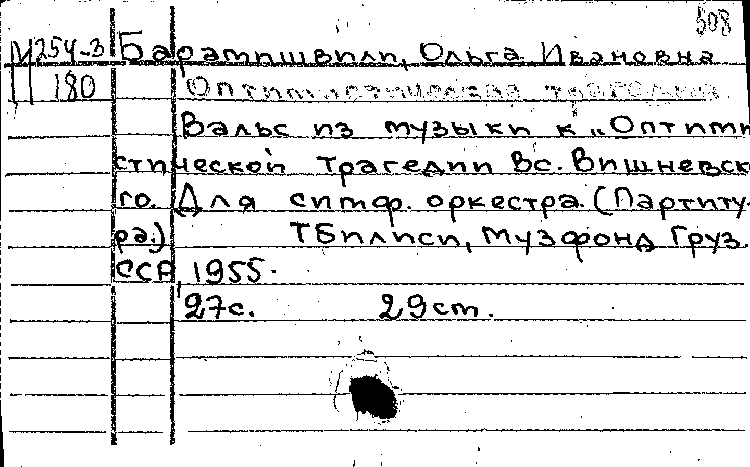 508
М 254-3 Баратишвили, Ольга Ивановна
180 Оптимистическая трагедия
Вальс из музыки к „Оптими
стической трагедии Вс. Вишневско
го. Для симф. оркестра. (Партиту-
ра.) Тбилиси, Музфонд Груз.
ССР, 1955.
27с. 29см.